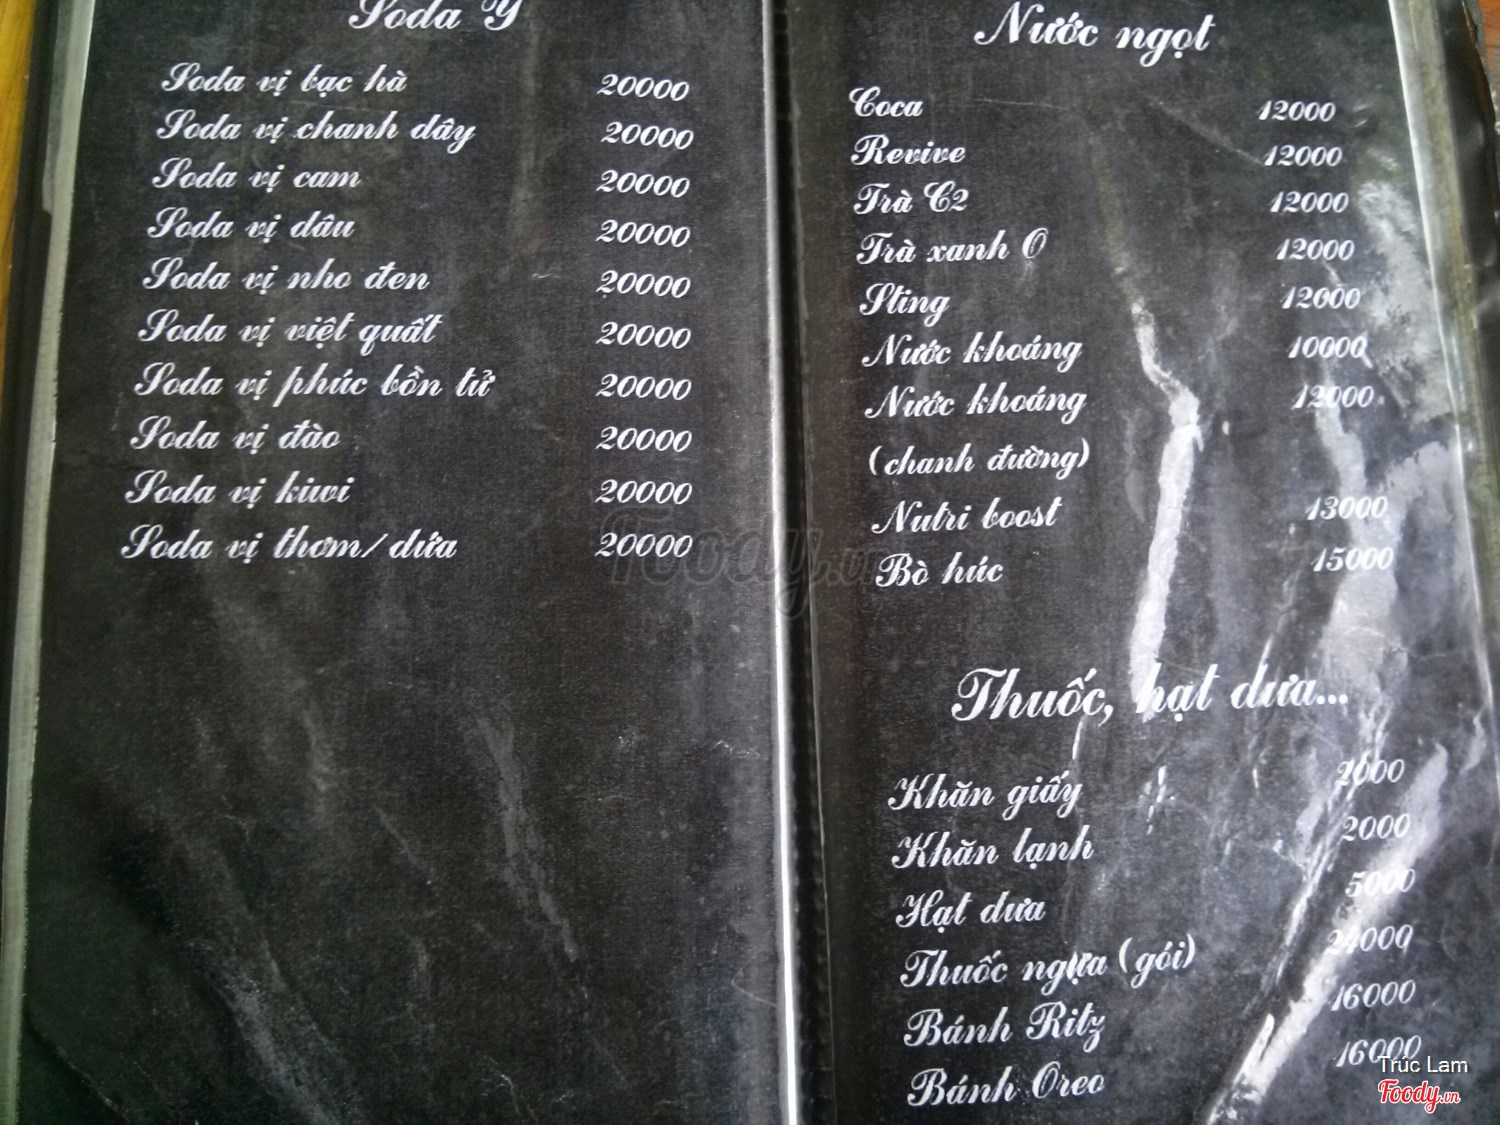 Soda Ý
Soda vị bạc hà 20000
Soda vị chanh dây 20000
Soda vị cam 20000
Soda vị dâu 20000
Soda vị nho đen 20000
Soda vị việt quất 20000
Soda vị phúc bồn tử 20000
Soda vị đào 20000
Soda vị kiwi 20000
Soda vị thơm/dứa 20000
Nước ngọt
Coca 12000
Revive 12000
Trà C2 12000
Trà xanh O 12000
Sting 12000
Nước khoáng 10000
Nước khoáng 12000
(chanh đường)
Nutri boost 13000
Bò húc 15000
Thuốc, hạt dưa...
Khăn giấy 2000
Khăn lạnh 2000
Hạt dưa 5000
Thuốc ngựa (gói) 24000
Bánh Ritz 16000
Bánh Oreo 16000
Foody.vn
Trúc Lam
Foody.vn